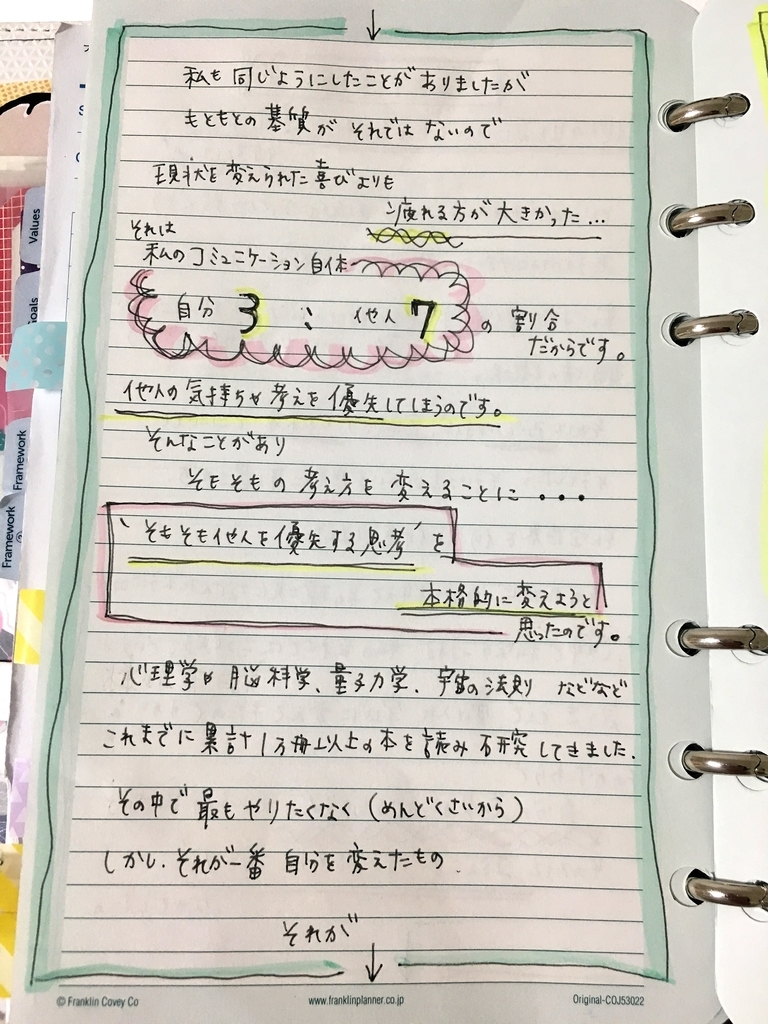 私も同じようにしたことがありましたが
もともとの基質がそれではないので
現状を変えられた喜びよりも
疲れる方が大きかった...
それは
私のコミュニケーション自体
自分 3 : 他人 7 の 割合
だからです。
他人の気持ちや考えを優先してしまうのです。
そんなことがあり
そもそもの考え方を変えることに・・・
"そもそも他人を優先する思考"を
本格的に変えようと
思ったのです。
心理学や脳科学、量子力学、宇宙の法則 などなど
これまでに累計1万冊以上の本を読み研究してきました.
その中で最もやりたくなく(めんどくさいから)
しかし、それが一番 自分を変えたもの.
それが
↓
Values
Goals
Framework
Framework
© Franklin Covey Co www.franklinplanner.co.jp Original-COJ53022